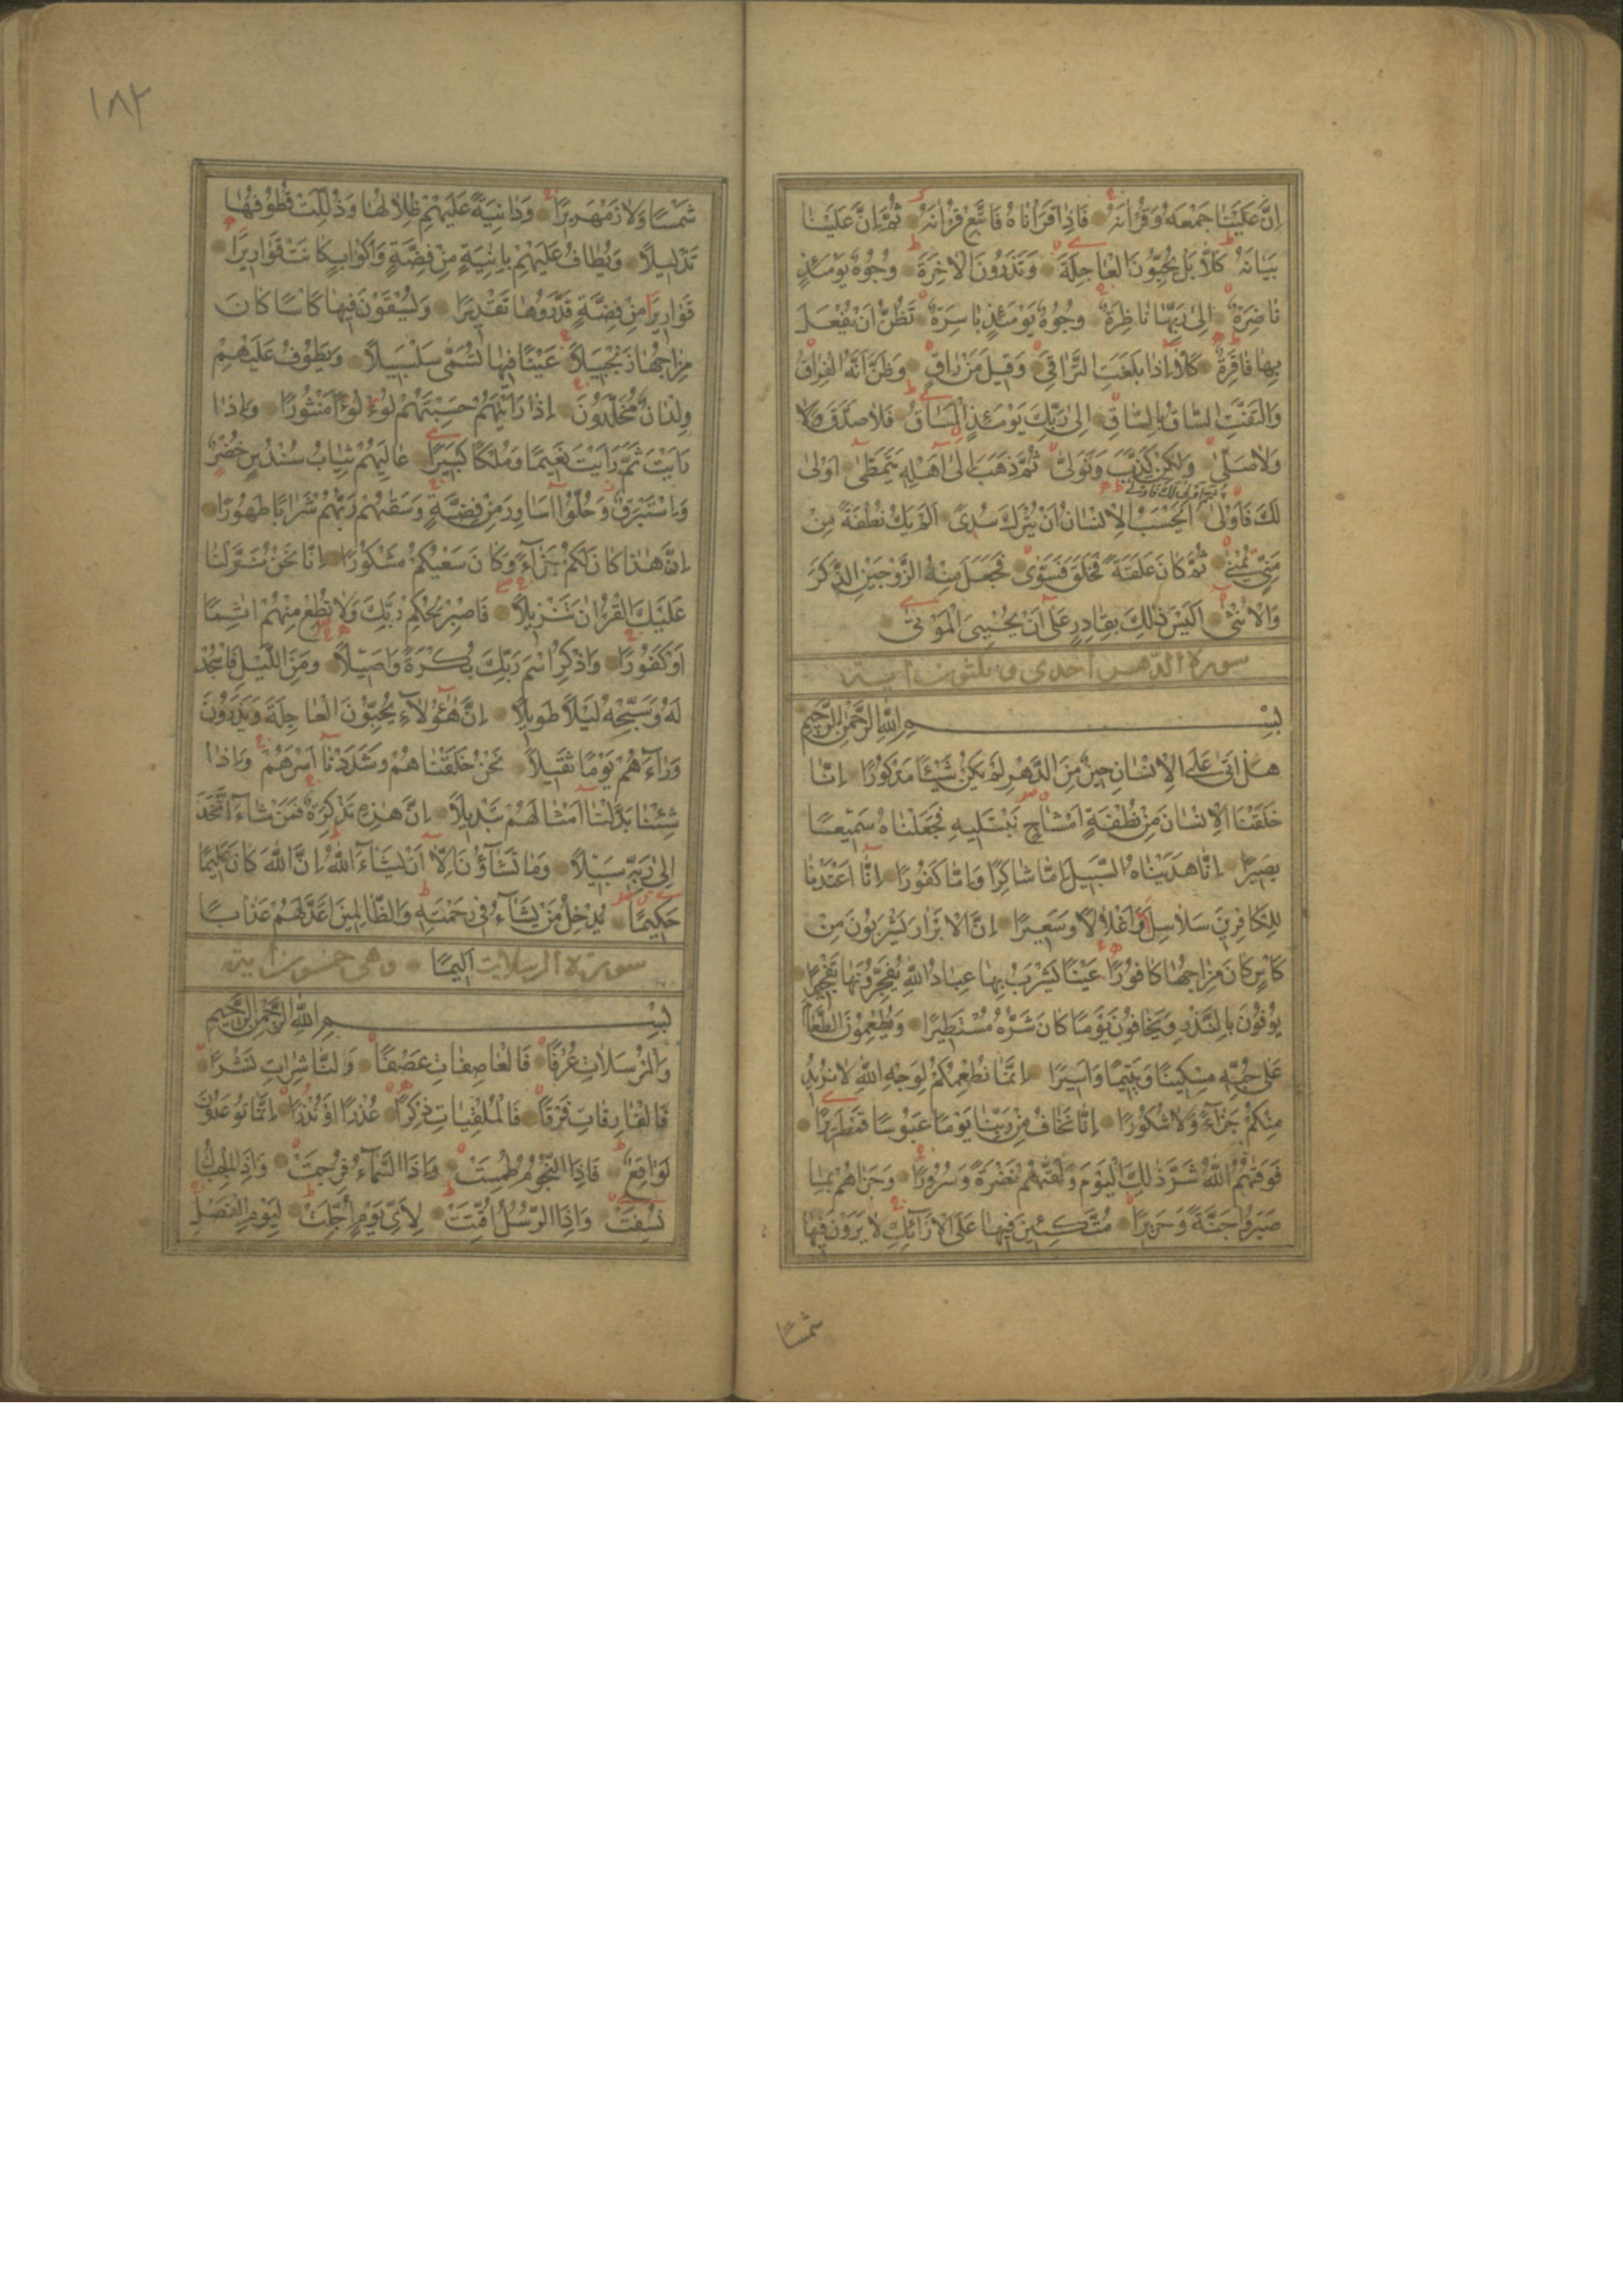 اِنَّ عَلَيْنَا جَمْعَهُ وَقُرْاٰنَهُ فَاِذَا قَرَاْنَاهُ فَاتَّبِعْ قُرْاٰنَهُ ثُمَّ اِنَّ عَلَيْنَا
بَيَانَهُ كَلَّا بَلْ تُحِبُّونَ الْعَاجِلَةَ وَتَذَرُونَ الْاٰخِرَةَ وُجُوهٌ يَوْمَئِذٍ
نَاضِرَةٌ اِلٰى رَبِّهَا نَاظِرَةٌ وَوُجُوهٌ يَوْمَئِذٍ بَاسِرَةٌ تَظُنُّ اَنْ يُفْعَلَ
بِهَا فَاقِرَةٌ كَلَّا اِذَا بَلَغَتِ التَّرَاقِيَ وَقِيلَ مَنْ رَاقٍ وَظَنَّ اَنَّهُ الْفِرَاقُ
وَالْتَفَّتِ السَّاقُ بِالسَّاقِ اِلٰى رَبِّكَ يَوْمَئِذٍ الْمَسَاقُ فَلَا صَدَّقَ
وَلَا صَلّٰى وَلٰكِنْ كَذَّبَ وَتَوَلّٰى ثُمَّ ذَهَبَ اِلٰى اَهْلِهِ يَتَمَطّٰى اَوْلٰى
ثم اولى لك فاولى
لَكَ فَاَوْلٰى اَيَحْسَبُ الْاِنْسَانُ اَنْ يُتْرَكَ سُدًى اَلَمْ يَكُ نُطْفَةً مِنْ
مَنِيٍّ يُمْنٰى ثُمَّ كَانَ عَلَقَةً فَخَلَقَ فَسَوّٰى فَجَعَلَ مِنْهُ الزَّوْجَيْنِ الذَّكَرَ
وَالْاُنْثٰى اَلَيْسَ ذٰلِكَ بِقَادِرٍ عَلٰى اَنْ يُحْيِيَ الْمَوْتٰى
سورة الدهر احدى وثلثون اية
بِسْمِ اللّٰهِ الرَّحْمٰنِ الرَّحِيمِ
هَلْ اَتٰى عَلَى الْاِنْسَانِ حِينٌ مِنَ الدَّهْرِ لَمْ يَكُنْ شَيْئًا مَذْكُورًا اِنَّا
خَلَقْنَا الْاِنْسَانَ مِنْ نُطْفَةٍ اَمْشَاجٍ نَبْتَلِيهِ فَجَعَلْنَاهُ سَمِيعًا
بَصِيرًا اِنَّا هَدَيْنَاهُ السَّبِيلَ اِمَّا شَاكِرًا وَاِمَّا كَفُورًا اِنَّا اَعْتَدْنَا
لِلْكَافِرِينَ سَلَاسِلَا وَاَغْلَالًا وَسَعِيرًا اِنَّ الْاَبْرَارَ يَشْرَبُونَ مِنْ
كَاْسٍ كَانَ مِزَاجُهَا كَافُورًا عَيْنًا يَشْرَبُ بِهَا عِبَادُ اللّٰهِ يُفَجِّرُونَهَا تَفْجِيرًا
يُوفُونَ بِالنَّذْرِ وَيَخَافُونَ يَوْمًا كَانَ شَرُّهُ مُسْتَطِيرًا وَيُطْعِمُونَ الطَّعَامَ
عَلٰى حُبِّهِ مِسْكِينًا وَيَتِيمًا وَاَسِيرًا اِنَّمَا نُطْعِمُكُمْ لِوَجْهِ اللّٰهِ لَا نُرِيدُ
مِنْكُمْ جَزَاءً وَلَا شُكُورًا اِنَّا نَخَافُ مِنْ رَبِّنَا يَوْمًا عَبُوسًا قَمْطَرِيرًا
فَوَقٰيهُمُ اللّٰهُ شَرَّ ذٰلِكَ الْيَوْمِ وَلَقّٰيهُمْ نَضْرَةً وَسُرُورًا وَجَزَاهُمْ بِمَا
صَبَرُوا جَنَّةً وَحَرِيرًا مُتَّكِئِينَ فِيهَا عَلَى الْاَرَائِكِ لَا يَرَوْنَ فِيهَا
شمسًا
١٨٢
شَمْسًا وَلَا زَمْهَرِيرًا وَدَانِيَةً عَلَيْهِمْ ظِلَالُهَا وَذُلِّلَتْ قُطُوفُهَا
تَذْلِيلًا وَيُطَافُ عَلَيْهِمْ بِاٰنِيَةٍ مِنْ فِضَّةٍ وَاَكْوَابٍ كَانَتْ قَوَارِيرَا
قَوَارِيرَا مِنْ فِضَّةٍ قَدَّرُوهَا تَقْدِيرًا وَيُسْقَوْنَ فِيهَا كَاْسًا كَانَ
مِزَاجُهَا زَنْجَبِيلًا عَيْنًا فِيهَا تُسَمّٰى سَلْسَبِيلًا وَيَطُوفُ عَلَيْهِمْ
وِلْدَانٌ مُخَلَّدُونَ اِذَا رَاَيْتَهُمْ حَسِبْتَهُمْ لُؤْلُؤًا مَنْثُورًا وَاِذَا
رَاَيْتَ ثَمَّ رَاَيْتَ نَعِيمًا وَمُلْكًا كَبِيرًا عَالِيَهُمْ ثِيَابُ سُنْدُسٍ خُضْرٌ
وَاِسْتَبْرَقٌ وَحُلُّوا اَسَاوِرَ مِنْ فِضَّةٍ وَسَقٰيهُمْ رَبُّهُمْ شَرَابًا طَهُورًا
اِنَّ هٰذَا كَانَ لَكُمْ جَزَاءً وَكَانَ سَعْيُكُمْ مَشْكُورًا اِنَّا نَحْنُ نَزَّلْنَا
عَلَيْكَ الْقُرْاٰنَ تَنْزِيلًا فَاصْبِرْ لِحُكْمِ رَبِّكَ وَلَا تُطِعْ مِنْهُمْ اٰثِمًا
اَوْ كَفُورًا وَاذْكُرِ اسْمَ رَبِّكَ بُكْرَةً وَاَصِيلًا وَمِنَ اللَّيْلِ فَاسْجُدْ
لَهُ وَسَبِّحْهُ لَيْلًا طَوِيلًا اِنَّ هٰؤُلَاءِ يُحِبُّونَ الْعَاجِلَةَ وَيَذَرُونَ
وَرَاءَهُمْ يَوْمًا ثَقِيلًا نَحْنُ خَلَقْنَاهُمْ وَشَدَدْنَا اَسْرَهُمْ وَاِذَا
شِئْنَا بَدَّلْنَا اَمْثَالَهُمْ تَبْدِيلًا اِنَّ هٰذِهِ تَذْكِرَةٌ فَمَنْ شَاءَ اتَّخَذَ
اِلٰى رَبِّهِ سَبِيلًا وَمَا تَشَاؤُنَ اِلَّا اَنْ يَشَاءَ اللّٰهُ اِنَّ اللّٰهَ كَانَ عَلِيمًا
حَكِيمًا يُدْخِلُ مَنْ يَشَاءُ فِي رَحْمَتِهِ وَالظَّالِمِينَ اَعَدَّ لَهُمْ عَذَابًا
سورة المرسلات اَلِيمًا وهى خمسون اية
بِسْمِ اللّٰهِ الرَّحْمٰنِ الرَّحِيمِ
وَالْمُرْسَلَاتِ عُرْفًا فَالْعَاصِفَاتِ عَصْفًا وَالنَّاشِرَاتِ نَشْرًا
فَالْفَارِقَاتِ فَرْقًا فَالْمُلْقِيَاتِ ذِكْرًا عُذْرًا اَوْ نُذْرًا اِنَّمَا تُوعَدُونَ
لَوَاقِعٌ فَاِذَا النُّجُومُ طُمِسَتْ وَاِذَا السَّمَاءُ فُرِجَتْ وَاِذَا الْجِبَالُ
نُسِفَتْ وَاِذَا الرُّسُلُ اُقِّتَتْ لِاَيِّ يَوْمٍ اُجِّلَتْ لِيَوْمِ الْفَصْلِ